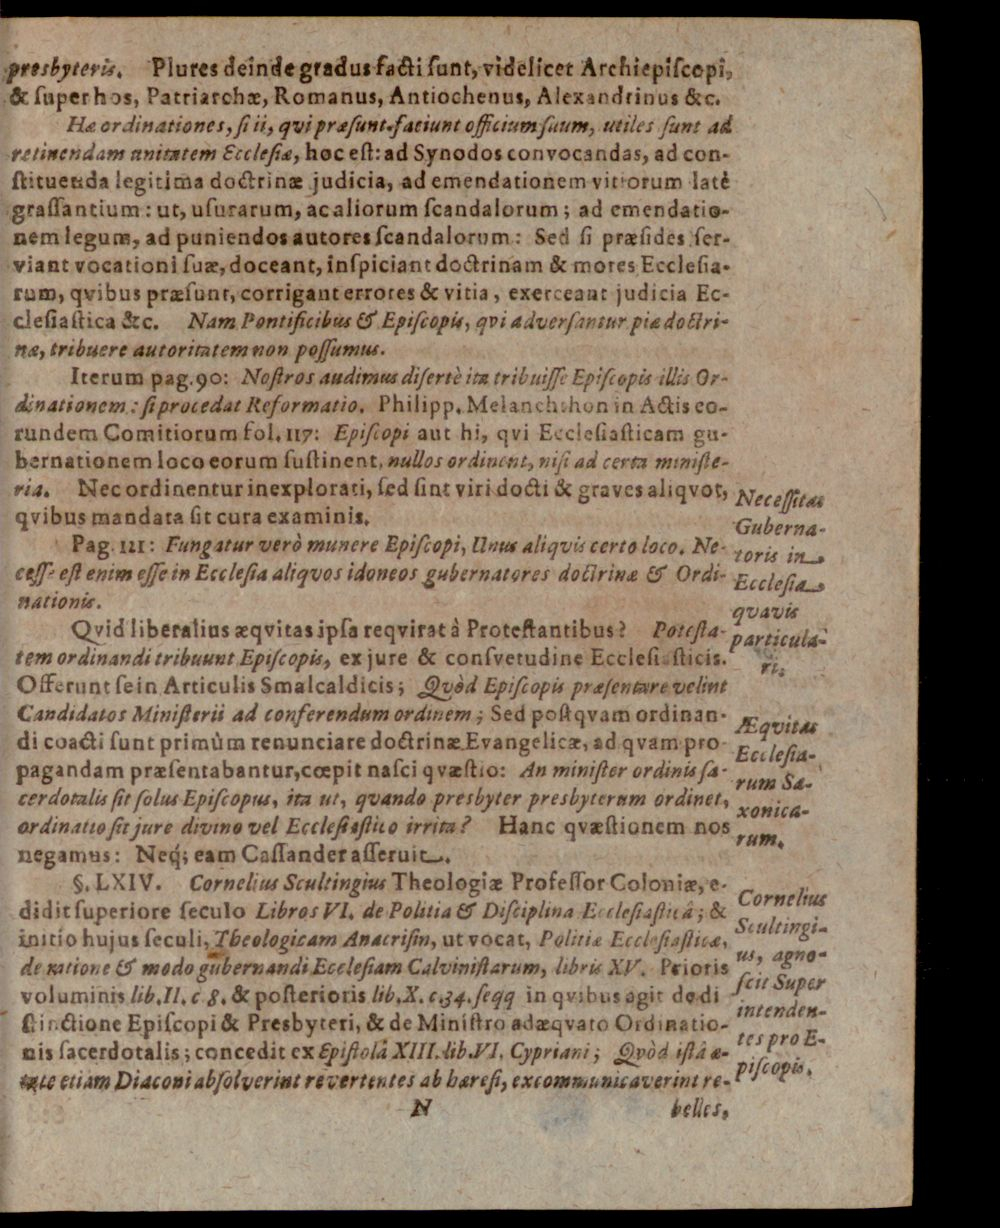 presbyteris. Plures deinde gradus facti sunt, videlicet Archiepiscopi,
& super hos, Patriarchæ, Romanus, Antiochenus, Alexandrinus &c.
Hæ ordinationes, si ii, qvi præsunt faciunt officium suum, utiles sunt ad
retinendam unitatem Ecclesiæ, hoc est: ad Synodos convocandas, ad con-
stituenda legitima doctrinæ judicia, ad emendationem vitiorum latè
grassantium: ut, usurarum, ac aliorum scandalorum; ad emendatio-
nem legum, ad puniendos autores scandalorum: Sed si præsides ser-
viant vocationi suæ, doceant, inspiciant doctrinam & mores Ecclesia-
rum, qvibus præsunt, corrigant errores & vitia, exerceant judicia Ec-
clesiastica &c. Nam Pontificibus & Episcopis, qvi adversantur piæ doctri-
næ, tribuere autoritatem non possumus.
Iterum pag. 90: Nostros audimus disertè ita tribuisse Episcopis illis Or-
dinationem: si procedat Reformatio. Philipp. Melanchthon in Actis eo-
rundem Comitiorum fol. 117: Episcopi aut hi, qvi Ecclesiasticam gu-
bernationem loco eorum sustinent, nullos ordinent, nisi ad certa ministe-
ria. Nec ordinentur inexplorati, sed sint viri docti & graves aliqvot,
qvibus mandata sit cura examinis.
Pag. 121: Fungatur verò munere Episcopi, Unus aliqvis certo loco. Ne-
cesse est enim esse in Ecclesia aliqvos idoneos gubernatores doctrinæ & Ordi-
nationis.
Necessitas
Guberna-
toris in
Ecclesia
qvavis
particula-
ri.
Qvid liberalius æqvitas ipsa reqvirat â Protestantibus? Potesta-
tem ordinandi tribuunt Episcopis, ex jure & consvetudine Ecclesiasticis.
Offerunt se in Articulis Smalcaldicis; Qvòd Episcopis præsentare velint
Candidatos Ministerii ad conferendum ordinem; Sed postqvam ordinan-
di coacti sunt primùm renunciare doctrinæ Evangelicæ, ad qvam pro-
pagandam præsentabantur, cœpit nasci qvæstio: An minister ordinis sa-
cerdotalis sit solus Episcopus, ita ut, qvando presbyter presbyterum ordinet,
ordinatio sit jure divino vel Ecclesiastico irrita? Hanc qvæstionem nos
negamus: Neq; eam Cassander asseruit.
Æqvitas
Ecclesia-
rum Sa-
xonica-
rum.
§. LXIV. Cornelius Scultingius Theologiæ Professor Coloniæ, e-
didit superiore seculo Libros VI. de Politia & Disciplina Ecclesiasticâ; &
initio hujus seculi, Theologicam Anacrisin, ut vocat, Politiæ Ecclesiasticæ,
de ratione & modo gubernandi Ecclesiam Calvinistarum, libris XV. Prioris
voluminis lib. II. c 8. & posterioris lib. X. c. 34. seqq in qvibus agit de di
stinctione Episcopi & Presbyteri, & de Ministro adæqvato Ordinatio-
nis sacerdotalis; concedit ex Epistolâ XIII. lib. VI. Cypriani; Qvòd istâ æ-
tate etiam Diaconi absolverint revertentes ab hæresi, excommunicaverint re-
Cornelius
Scultingi-
us, agno-
scit Super
intenden-
tes pro E-
piscopis.
N
belles,